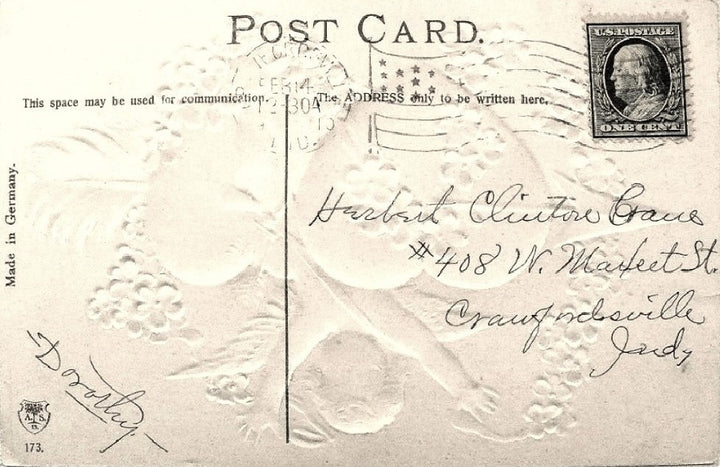 POST CARD.
U.S.POSTAGE
FEB 14
ONE CENT
IND.
This space may be used for communication.
The ADDRESS only to be written here,
Made in Germany.
Herbert Clinton Crane
#408 W. Market St.
Crawfordsville
Indy
Dorothy.
A. S.
173.